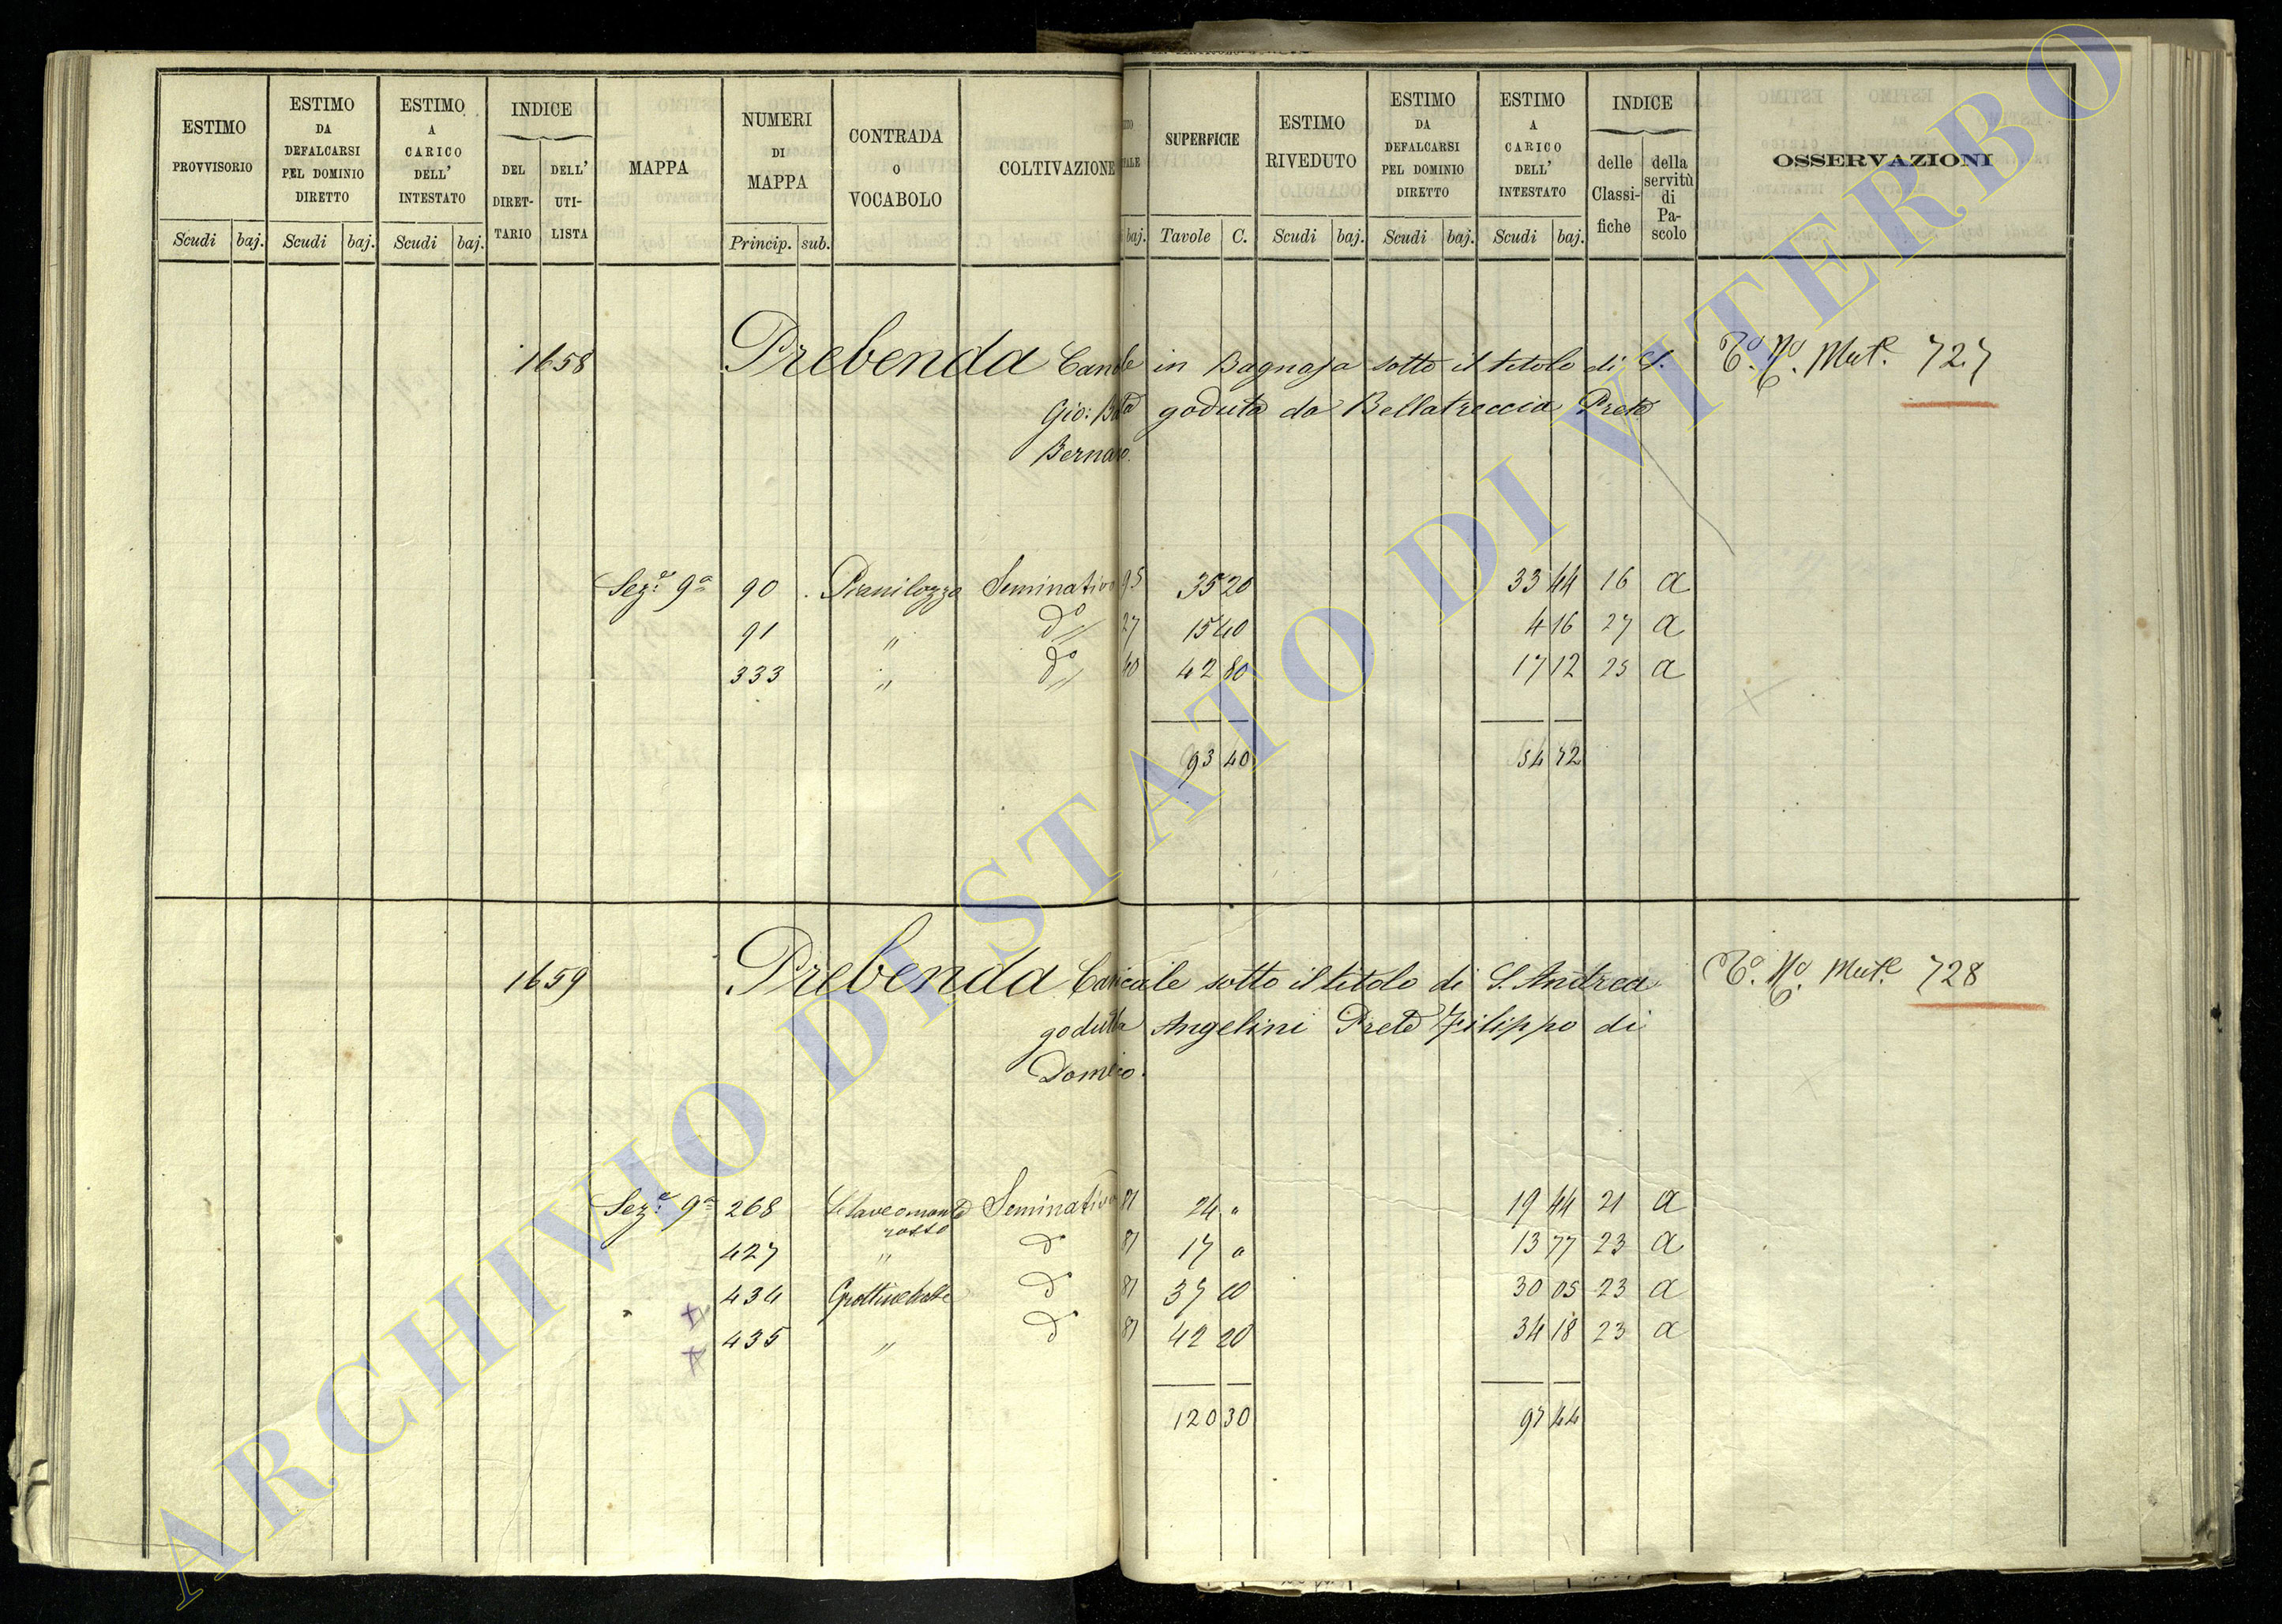 ESTIMO PROVVISORIO Scudi baj.
ESTIMO DA DEFALCARSI PEL DOMINIO DIRETTO Scudi baj.
ESTIMO A CARICO DELL' INTESTATO Scudi baj.
INDICE DEL DIRET-TARIO DELL' UTI-LISTA
MAPPA
NUMERI DI MAPPA Princip. sub.
CONTRADA O VOCABOLO
COLTIVAZIONE
baj.
SUPERFICIE Tavole C.
ESTIMO RIVEDUTO Scudi baj.
ESTIMO DA DEFALCARSI PEL DOMINIO DIRETTO Scudi baj.
ESTIMO A CARICO DELL' INTESTATO Scudi baj.
INDICE delle Classi-fiche della servitù di Pa-scolo
OSSERVAZIONI
1658 Prebenda Canle in Bagnaja sotto il titolo di S. Mute. 727
Gio: Bta goduta da Bellatreccia Prete
Bernardo.
Seze. 9a 90 Pranilozzo Seminativo 95 35 20 33 44 16 a
91 " do 27 15 40 4 16 27 a
333 " do 40 42 80 17 12 25 a
93 40 54 72
1659 Prebenda Canicale sotto il titolo di S. Andrea Mute. 728
goduta Angelini Prete Filippo di
Domco.
Seze. 9a 268 rosso Seminativo 81 24 " 19 44 21 a
427 " do 81 17 " 13 77 23 a
434 do 81 37 10 30 05 23 a
435 " do 81 42 20 34 18 23 a
120 30 97 44
ARCHIVIO DI STATO DI VITERBO